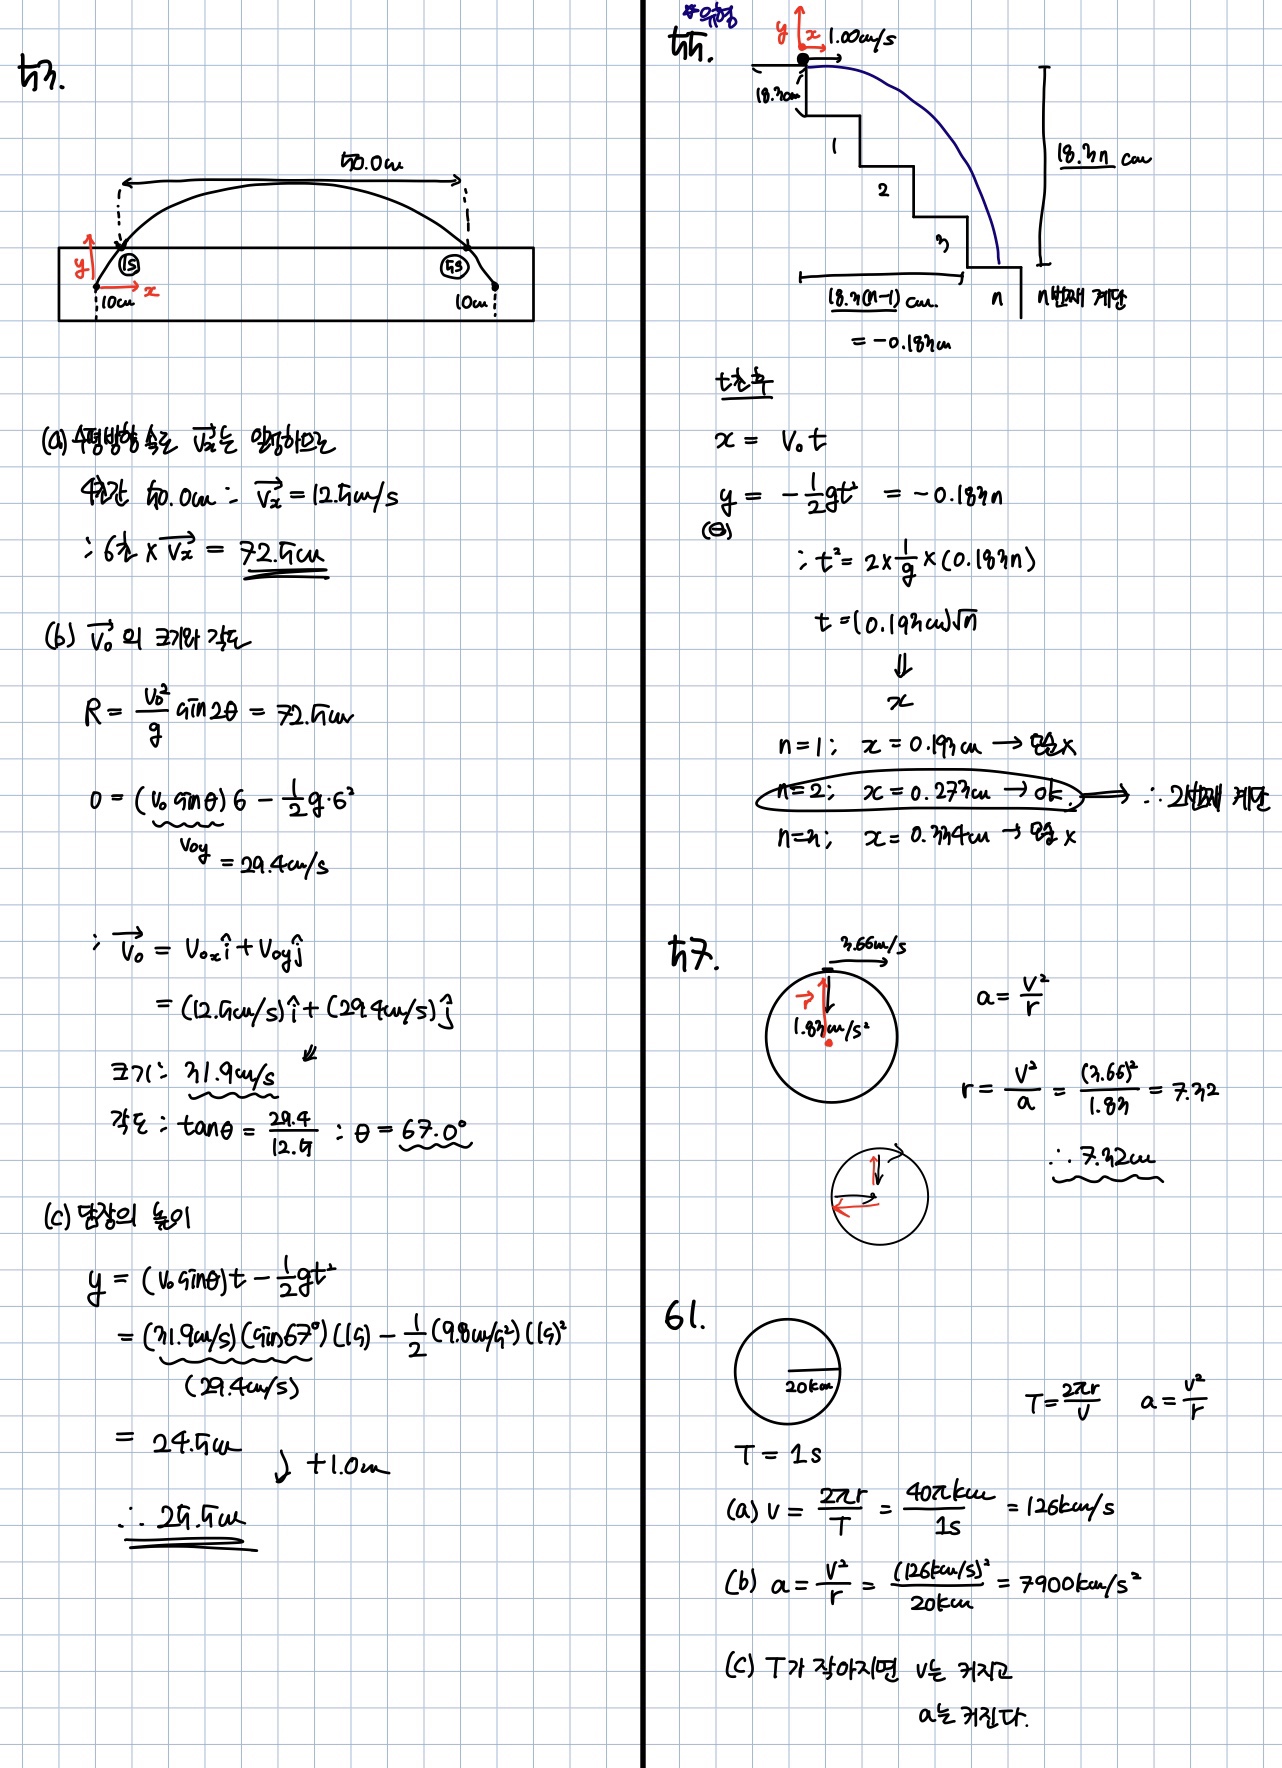 53.
50.0m
1s
5s
y
x
10m
10m
(a) 수평방향 속도 vx는 일정하므로
4초간 50.0m ∴ vx = 12.5m/s
∴ 6초 × vx = 72.5m
(b) v₀의 크기와 각도
R = v₀²/g sin2θ = 72.5m
0 = (v₀ sinθ) 6 - 1/2 g·6²
v₀y = 29.4m/s
∴ v₀ = v₀ₓ î + v₀y ĵ
= (12.5m/s) î + (29.4m/s) ĵ
크기: 31.9m/s
각도: tanθ = 29.4/12.5 ∴ θ = 67.0°
(c) 담장의 높이
y = (v₀ sinθ)t - 1/2 gt²
= (31.9m/s)(sin67°)(1s) - 1/2 (9.8m/s²)(1s)²
(29.4m/s)
= 24.5m
↓ +1.0m
∴ 25.5m
*유형
55.
y
x
1.00m/s
18.3cm
1
2
3
n
18.3n cm
18.3(n-1) cm.
n번째 계단
= -0.183m
t초 후
x = v₀t
y = -1/2 gt² = -0.183n
(⊖)
∴ t² = 2×1/g×(0.183n)
t = (0.193m)√n
⇓
x
n=1; x = 0.193m → 모순 x
n=2; x = 0.273m → ok. → ∴ 2번째 계단
n=3; x = 0.334m → 모순 x
57.
3.66m/s
1.83m/s²
a = v²/r
r = v²/a = (3.66)²/1.83 = 7.32
∴ 7.32m
61.
20km
T = 2πr/v a = v²/r
T = 1s
(a) v = 2πr/T = 40πkm/1s = 126km/s
(b) a = v²/r = (126km/s)²/20km = 7900km/s²
(c) T가 작아지면 v는 커지고
a는 커진다.